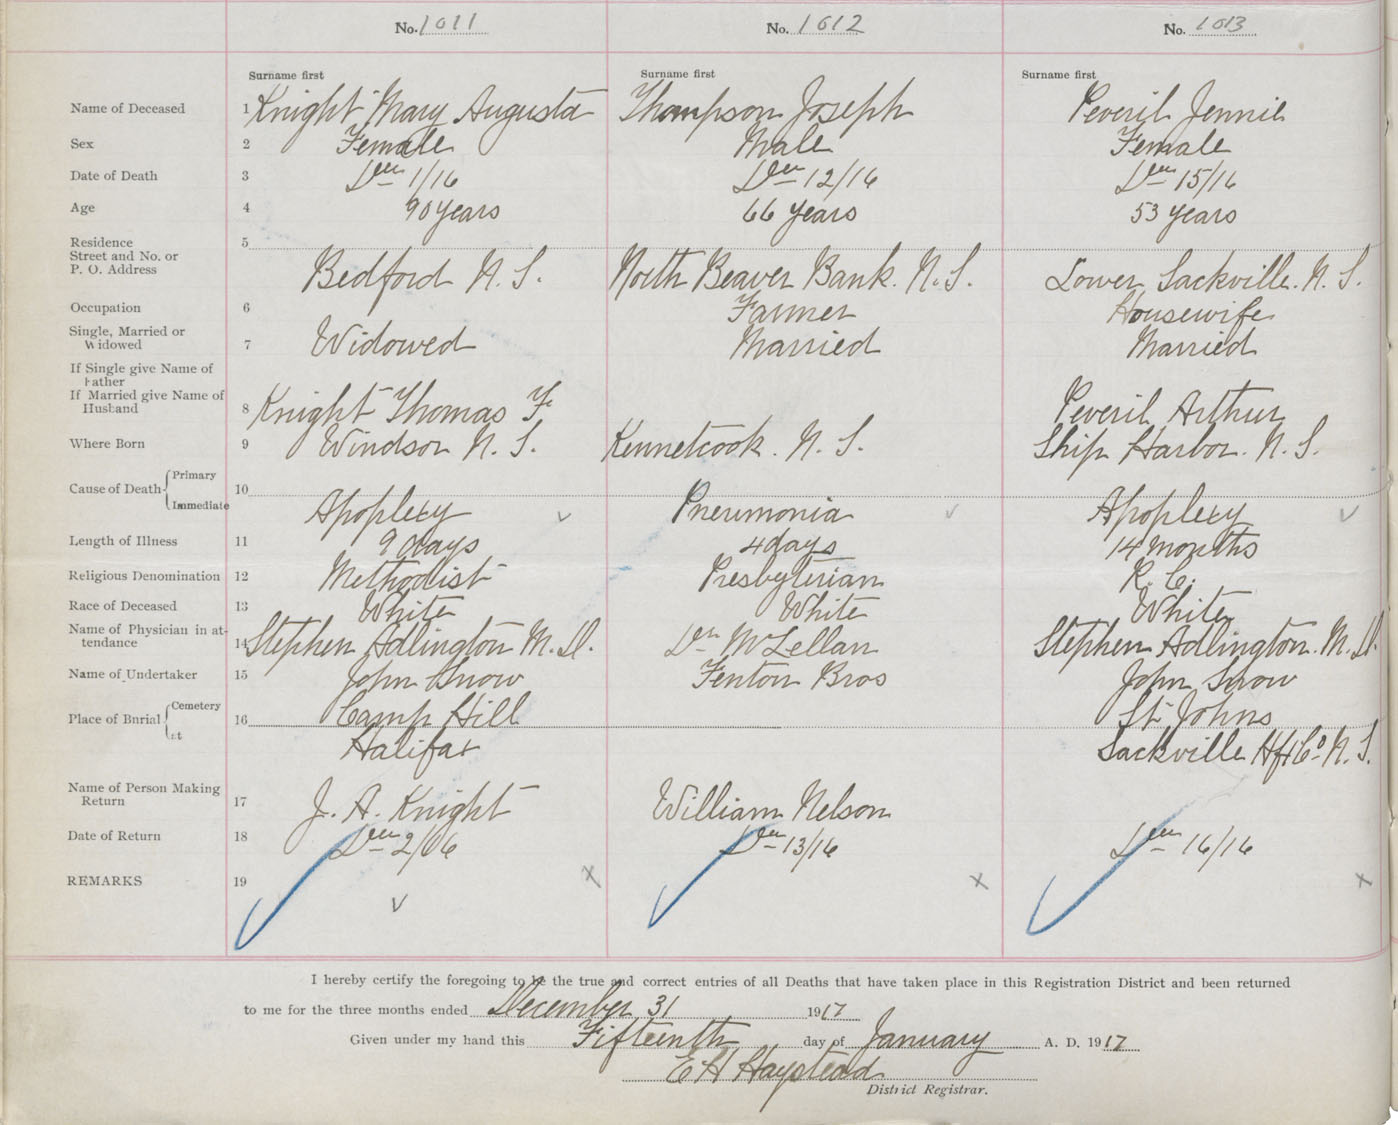 No. 1011 No. 1012 No. 1013
Surname first Surname first Surname first
Name of Deceased 1 Knight Mary Augusta Thompson Joseph Peveril Jennie
Sex 2 Female Male Female
Date of Death 3 Dec 1/16 Dec 12/16 Dec 15/16
Age 4 90 years 66 years 53 years
Residence 5
Street and No. or
P. O. Address Bedford N. S. North Beaver Bank. N. S. Lower Sackville. N. S.
Occupation 6 Farmer Housewife
Single, Married or
Widowed 7 Widowed Married Married
If Single give Name of
Father
If Married give Name of
Husband 8 Knight Thomas F Peveril Arthur
Where Born 9 Windsor N. S. Kennetcook. N. S. Ship Harbor. N. S.
Primary
Cause of Death 10
Immediate Apoplexy Pneumonia Apoplexy
Length of Illness 11 9 days 4 days 14 months
Religious Denomination 12 Methodist Presbyterian R. C.
Race of Deceased 13 White White White
Name of Physician in at-
tendance 14 Stephen Adlington M. D. Dr McLellan Stephen Adlington. M. D.
Name of Undertaker 15 John Snow Fenton Bros John Snow
Cemetery Camp Hill St Johns
Place of Burial 16
at Halifax Sackville Hfx Co N. S.
Name of Person Making
Return 17 J. A. Knight William Nelson
Date of Return 18 Dec 2/06 Dec 13/16 Dec 16/16
REMARKS 19
I hereby certify the foregoing to be the true and correct entries of all Deaths that have taken place in this Registration District and been returned
to me for the three months ended December 31 1917
Given under my hand this Fifteenth day of January A. D. 1917
E H Haystead
District Registrar.